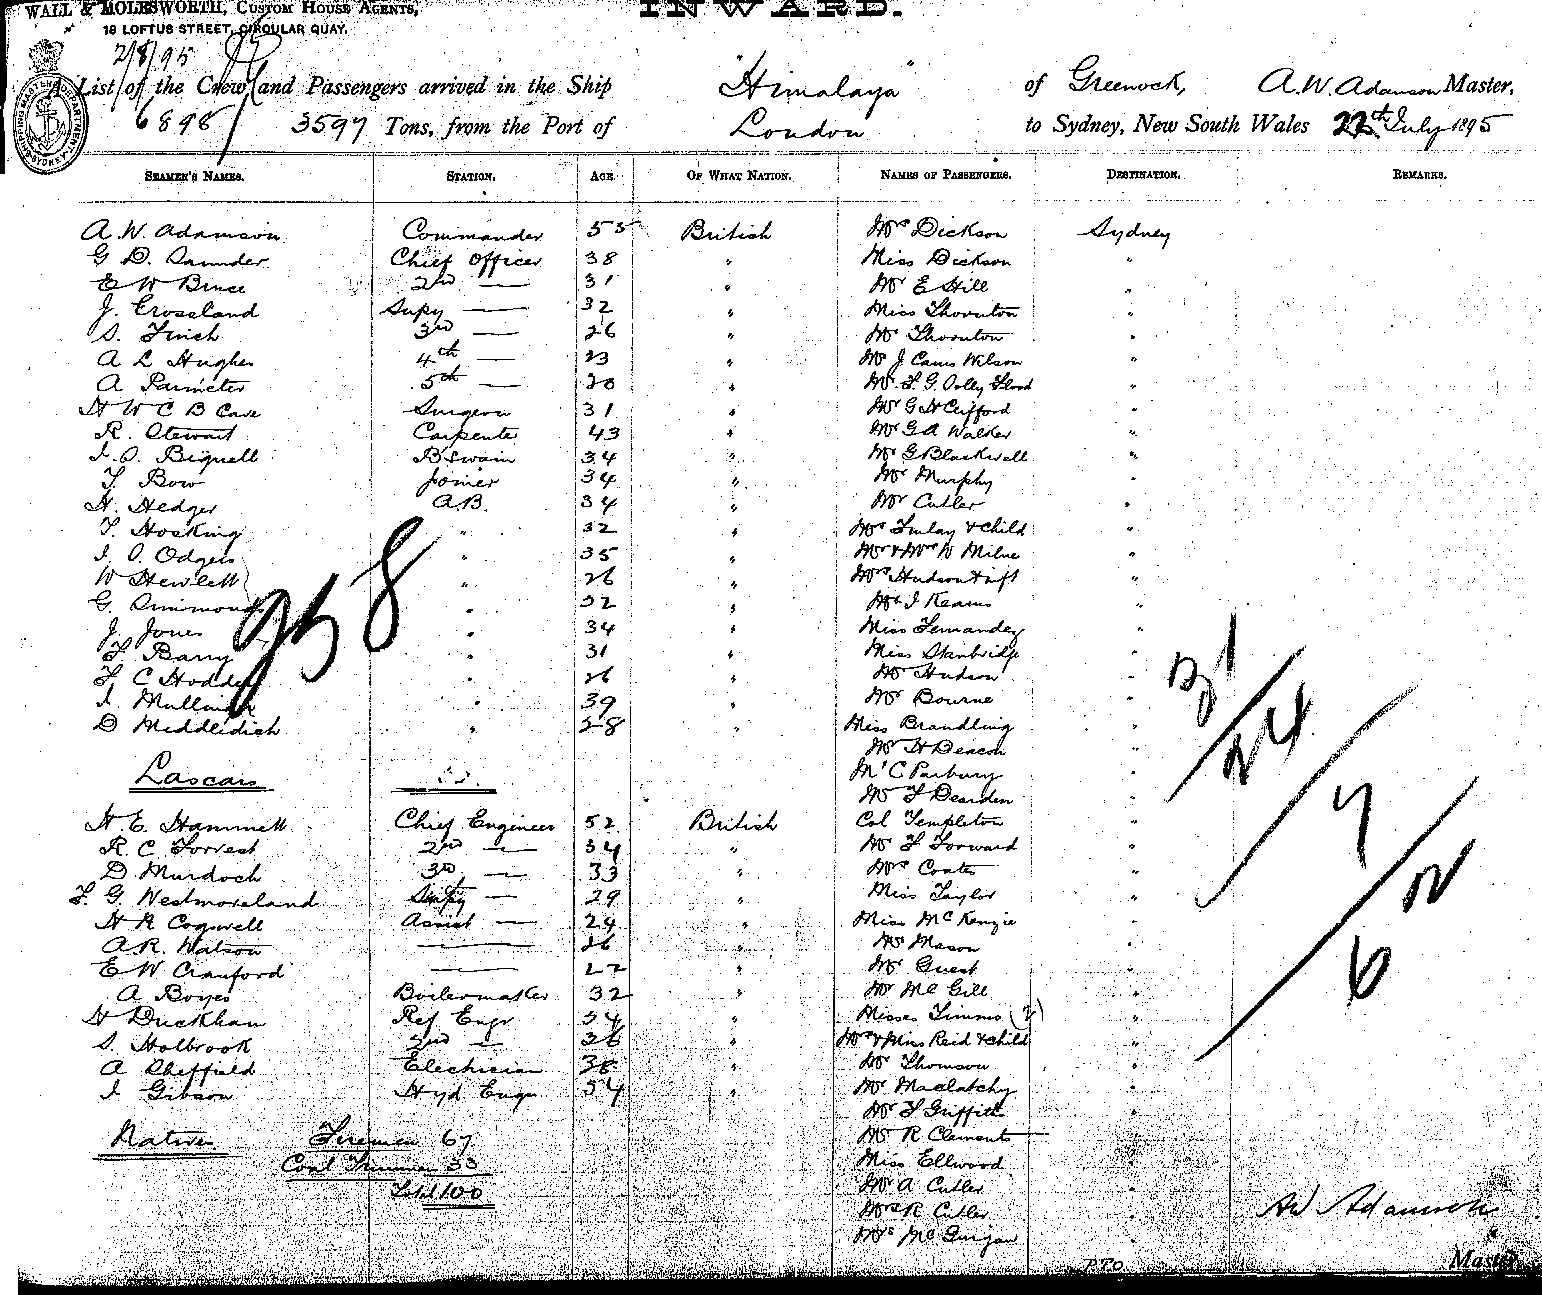 INWARD.
WALL & MOLESWORTH, CUSTOM HOUSE AGENTS,
18 LOFTUS STREET, CIRCULAR QUAY.
2/8/95
A List of the Crew and Passengers arrived in the Ship "Himalaya" of Greenock, A. W. Adamson Master,
6898 3597 Tons, from the Port of London to Sydney, New South Wales 22th July 1895
SEAMEN'S NAMES. STATION. AGE. OF WHAT NATION. NAMES OF PASSENGERS. DESTINATION. REMARKS.
A. W. Adamson Commander 55 British Mrs Dickson Sydney
G D. Saunder Chief Officer 38 " Miss Dickson "
E W Bruce 2nd — 31 " Mr E Hill "
J. Crossland Supy — 32 " Miss Thornton "
S. Finch 3rd — 26 " Mr Thornton "
A L Hughes 4th — 23 " Mr J Wilson "
A Parmeter 5th — 20 " Mr F. G. "
H W C B Cave Surgeon 31 " Mr G H Clifford "
R. Stewart Carpenter 43 " Mr G A Walker "
J. O. Bignell B Swain 34 " Mr G Blackwell "
T. Bow Joiner 34 " Mr Murphy "
H. Hedger A.B. 34 " Mr Cutler "
T. Hosking " 32 " Mrs Finlay & child "
J. O. Odgers " 35 " Mr & Mrs W Milne "
W Hewlett " 26 " Mrs Hudson & inft "
G. Simmonds " 32 " Mr J Kearns "
J. Jones " 34 " Miss Fernandez "
F Barry " 31 " Miss Stanbridge "
F C Hodder " 26 " Mr Hudson "
J. " 39 " Mr Bourne "
D Middleditch " 28 " Miss Brandling "
Mr H Deacon "
Mr C Parbury "
Lascars
Mr F Dearden "
H. E. Hammett Chief Engineer 52 British Col Templeton "
R. C. Forrest 2nd — 34 " Mr F Forward "
D Murdoch 3rd — 33 " Mrs Coates "
F. G. Westmoreland Supy — 29 " Miss Taylor "
H R Cogswell Assist — 24 " Miss McKenzie "
A. R. Watson — 26 " Mr Mason "
E W Crauford — 22 " Mr Guest "
A Boyes Boilermaker 32 " Mr McGill "
H Duckham Ref Engr 34 " Misses Timms (2) "
S. Holbrook 2nd — 26 " Mrs & Miss Reid & child "
A Sheffield Electrician 38 " Mr Thomson "
J Gibson Hyd Engr 54 " Mr Maclatchy "
Mr F Griffith "
Natives Firemen 67 Mr R Clement "
Coal Trimmers 33 Miss Ellwood "
Total 100 Mr A Cutler "
Mrs R Cutler "
AW Adamson
Mrs "
P.T.O. Master.
958
31
24
7
62